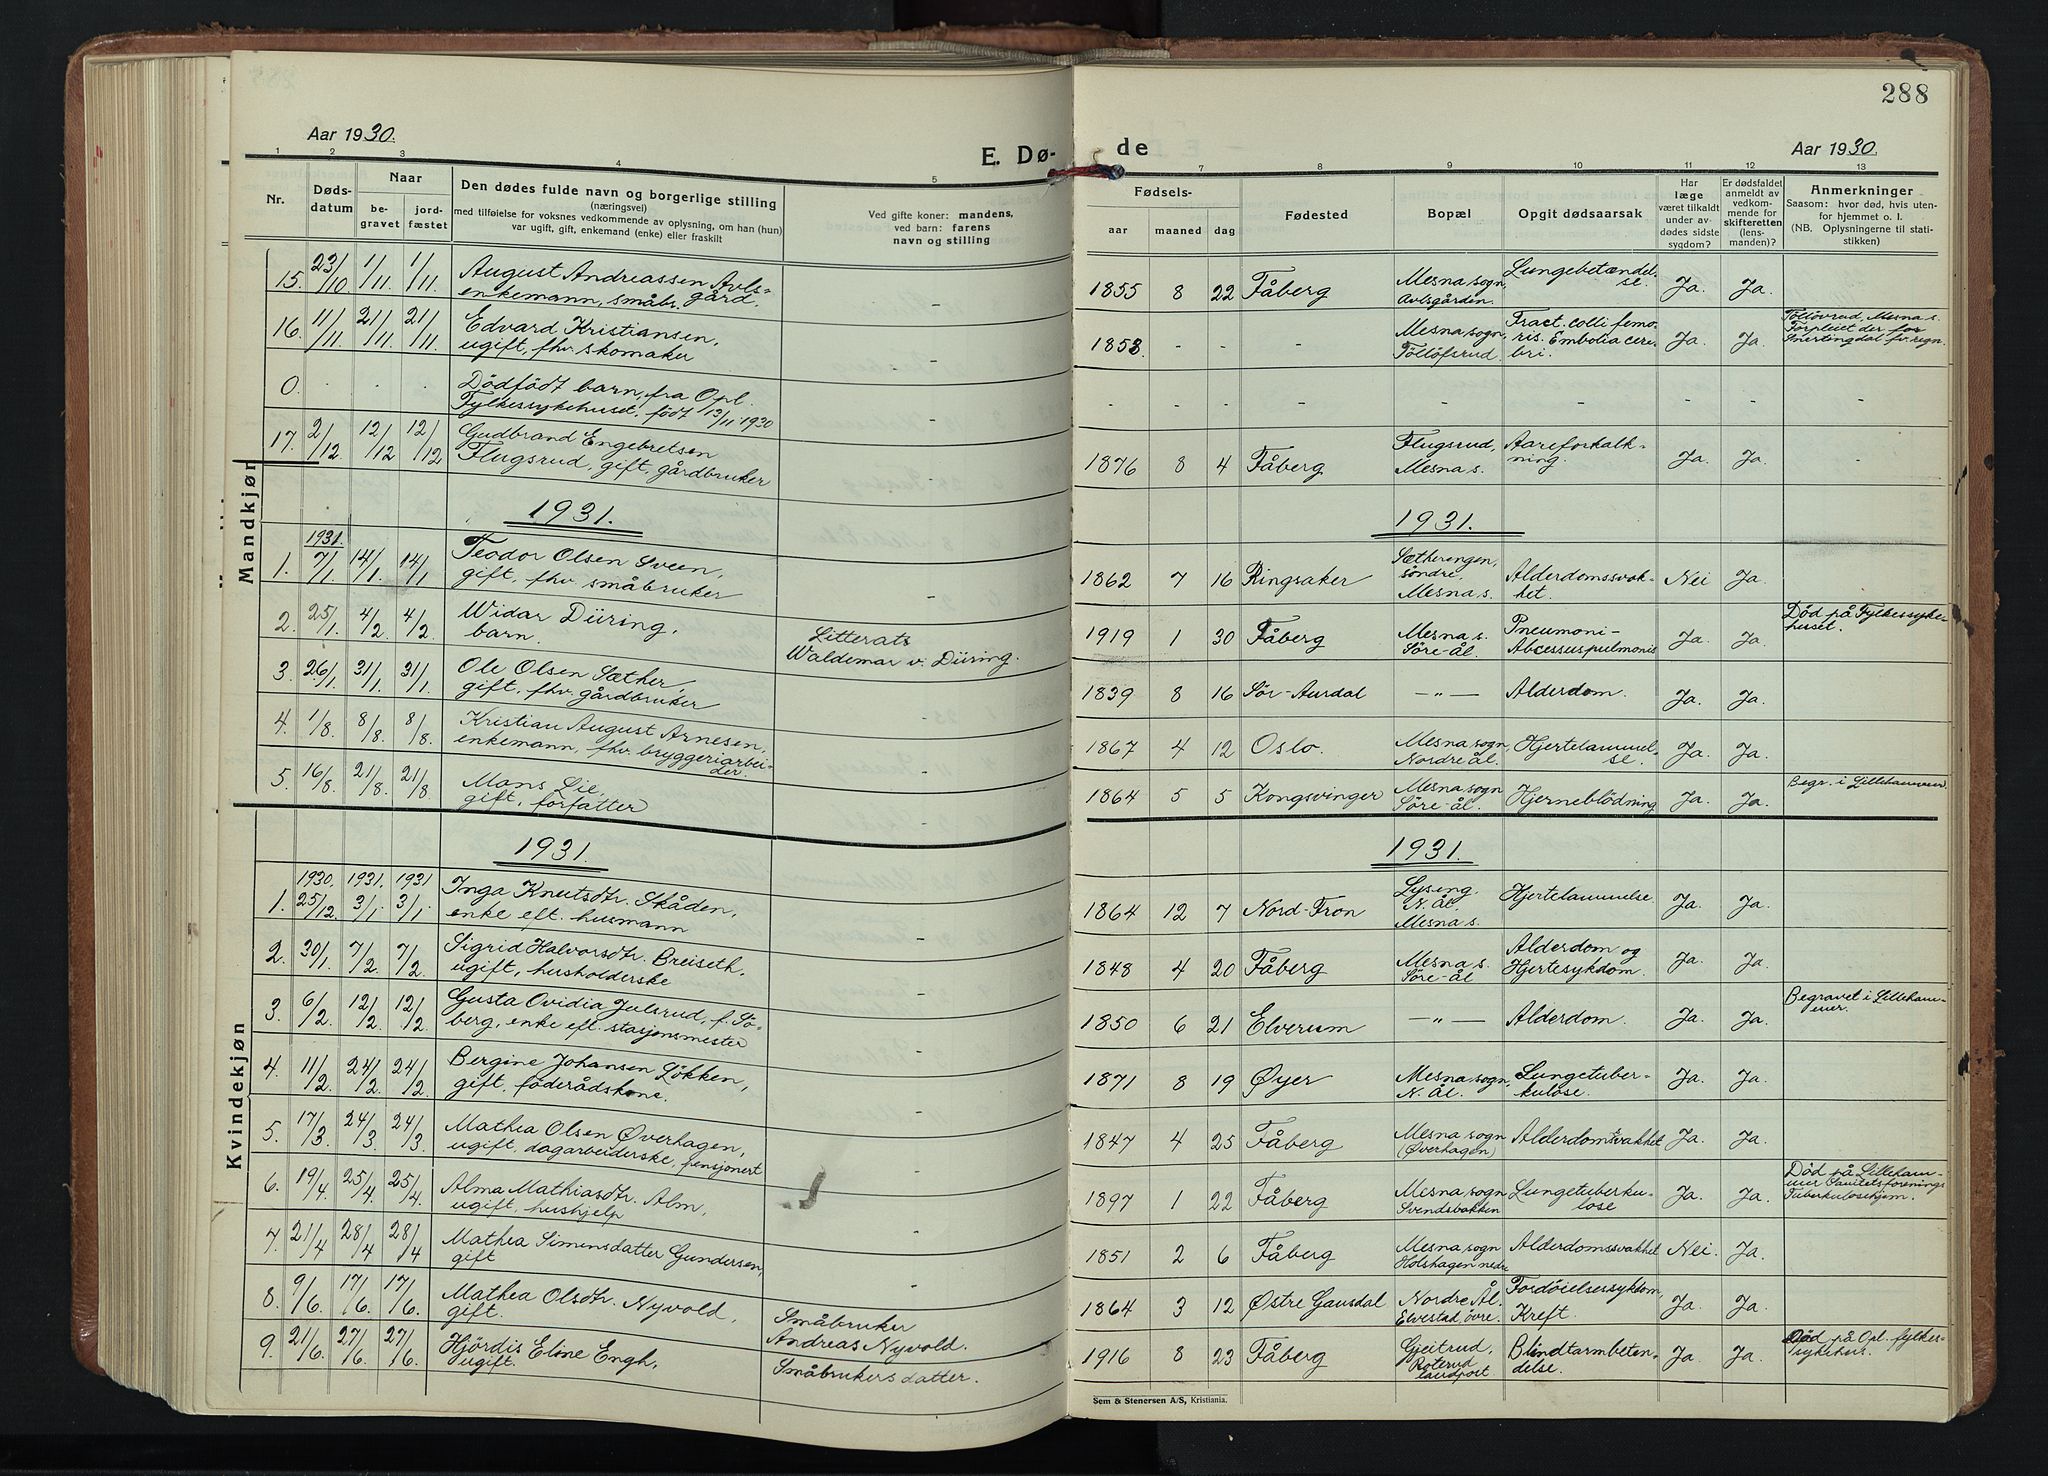 288
Aar 1930.
E. Dø-
de
Aar 1930.
1 2 3 4 5 7 8 9 10 11 12 13
Nr.
Døds-
datum
Naar
be-
gravet
jord-
fæstet
Den dødes fulde navn og borgerlige stilling
(næringsvei)
med tilføielse for voksnes vedkommende av oplysning, om han (hun)
var ugift, gift, enkemand (enke) eller fraskilt
Ved gifte koner: mandens,
ved barn: farens
navn og stilling
Fødsels-
aar maaned dag
Fødested
Bopæl
Opgit dødsaarsak
Har
læge
været tilkaldt
under av-
dødes sidste
sygdom?
Er dødsfaldet
anmeldt av
vedkom-
mende for
skifteretten
(lens-
manden)?
Anmerkninger
Saasom: hvor død, hvis uten-
for hjemmet o. l.
(NB. Oplysningerne til stati-
stikken)
Mandkjøn
15. 23/10 1/11. 1/11. August Andreassen Avls-
gård,
enkemann, småbr. - 1855 8 22 Fåberg Mesna sogn,
Avlsgården. Lungebetændel-
se. Ja. Ja.
16. 11/11. 21/11. 21/11. Edvard Kristiansen,
ugift, fhv. skomaker - 1853 - - - Mesna sogn,
Töllöfsrud. Fract. colli femo-
ris. Embolia cere-
bri. Ja. Ja. Töllövrud, Mesna s.
Forpleiet der for
Snertingdal fv. regn.
0 . . . Dödfödt barn, fra Opl.
Fylkessykehuset, födt 13/11-1930 - - - - - - - - - -
17. 2/12. 12/12 12/12 Gudbrand Engebretsen
Flugsrud, gift, gårdbruker - 1876 8 4 Fåberg Flugsrud,
Mesna s. Aareforkalk-
ning. Ja. Ja. -
1931. 1931.
1931.
1. 7/1. 14/1. 14/1 Teodor Olsen Sveen,
gift, fhv. småbruker - 1862 7 16 Ringsaker Sætherengen,
söndre,
Mesna s. Alderdomssvak-
het. Nei Ja.
2. 25/1. 4/2 4/2 Widar Düring,
barn. Litterats
Waldemar v. Düring. 1919 1 30 Fåberg Mesna s.
Söre-ål. Pneumoni-
Abcessus pulmonis Ja. Ja. Död på Fylkessyke-
huset.
3. 26/1. 31/1. 31/1. Ole Olsen Sæther,
gift, fhv. gårdbruker - 1839 8 16 Sør-Aurdal -"- Alderdom. Ja. Ja.
4. 1/8. 8/8. 8/8. Kristian August Arnesen,
enkemann, fhv. bryggeriarbei-
der. - 1867 4 12 Oslo. Mesna sogn,
Nordre ål. Hjertelammel-
se. Ja. Ja.
5. 16/8. 21/8. 21/8 Mons Lie,
gift, forfatter - 1864 5 5 Kongsvinger Mesna sogn
Söre-ål. Hjerneblödning Ja. Ja. Begr. i Lillehammer.
Kvindekjøn
1931. 1931.
1930. 1931. 1931
1. 25/12. 3/1 3/1 Inga Knutsdtr. Skåden,
enke eft. husmann - 1864 12 7 Nord-Fron Lyseng,
N. ål
Mesna s. Hjertelammelse Ja. Ja.
2. 30/1. 7/2 7/2. Sigrid Halvorsdtr. Breiseth,
ugift, husholderske - 1848 4 20 Fåberg Mesna s.
Söre-ål Alderdom og
Hjertesykdom. Ja. Ja.
3. 6/2. 12/2 12/2 Gusta Ovidia Julsrud, f. Sö-
berg, enke eft. stasjonsmester - 1850 6 21 Elverum -"- Alderdom. Ja. Ja. Begravet i Lilleham-
mer.
4. 11/2. 24/2. 24/2 Bergine Johansen Løkken,
gift, föderådskone. - 1871 8 19 Øyer Mesna sogn,
N. ål. Lungetuber-
kulose. Ja. Ja.
5. 17/3. 24/3 24/3 Mathea Olsen Øverhagen,
ugift, dagarbeiderske, pensjonert - 1847 4 25 Fåberg Mesna sogn
(Øverhagen) Alderdomssvakhet Ja. Ja.
6. 19/4. 25/4. 25/4. Alma Mathiasdtr. Alm,
ugift, hushjelp - 1897 1 22 Fåberg Mesna sogn
Svendsbakken Lungetuberku-
lose Ja. Ja. Död på Lilleham-
mer Sanitetsforenings
Tuberkulosehjem.
7. 21/4 28/4 28/4 Mathea Simensdatter Gundersen,
gift - 1851 2 6 Fåberg Mesna sogn
Holshagen nedre Alderdomssvakhet Nei. Ja.
8. 9/6. 17/6 17/6. Mathea Olsdtr. Nyvold,
gift. Småbruker
Andreas Nyvold. 1864 3 12 Østre Gausdal Nordre Ål.
Elvestad, övre. Fordöielsessykdom,
Kreft. Ja. Ja.
9. 21/6. 27/6. 27/6. Hjördis Eline Engh,
ugift. Småbrukersdatter. 1916 8 23 Fåberg Gjeitrud,
Roterud
landpost Blindtarmbeten-
delse. Ja. Ja. Död på Opl. fylkes-
sykehus.
Sem & Stenersen A/S, Kristiania.